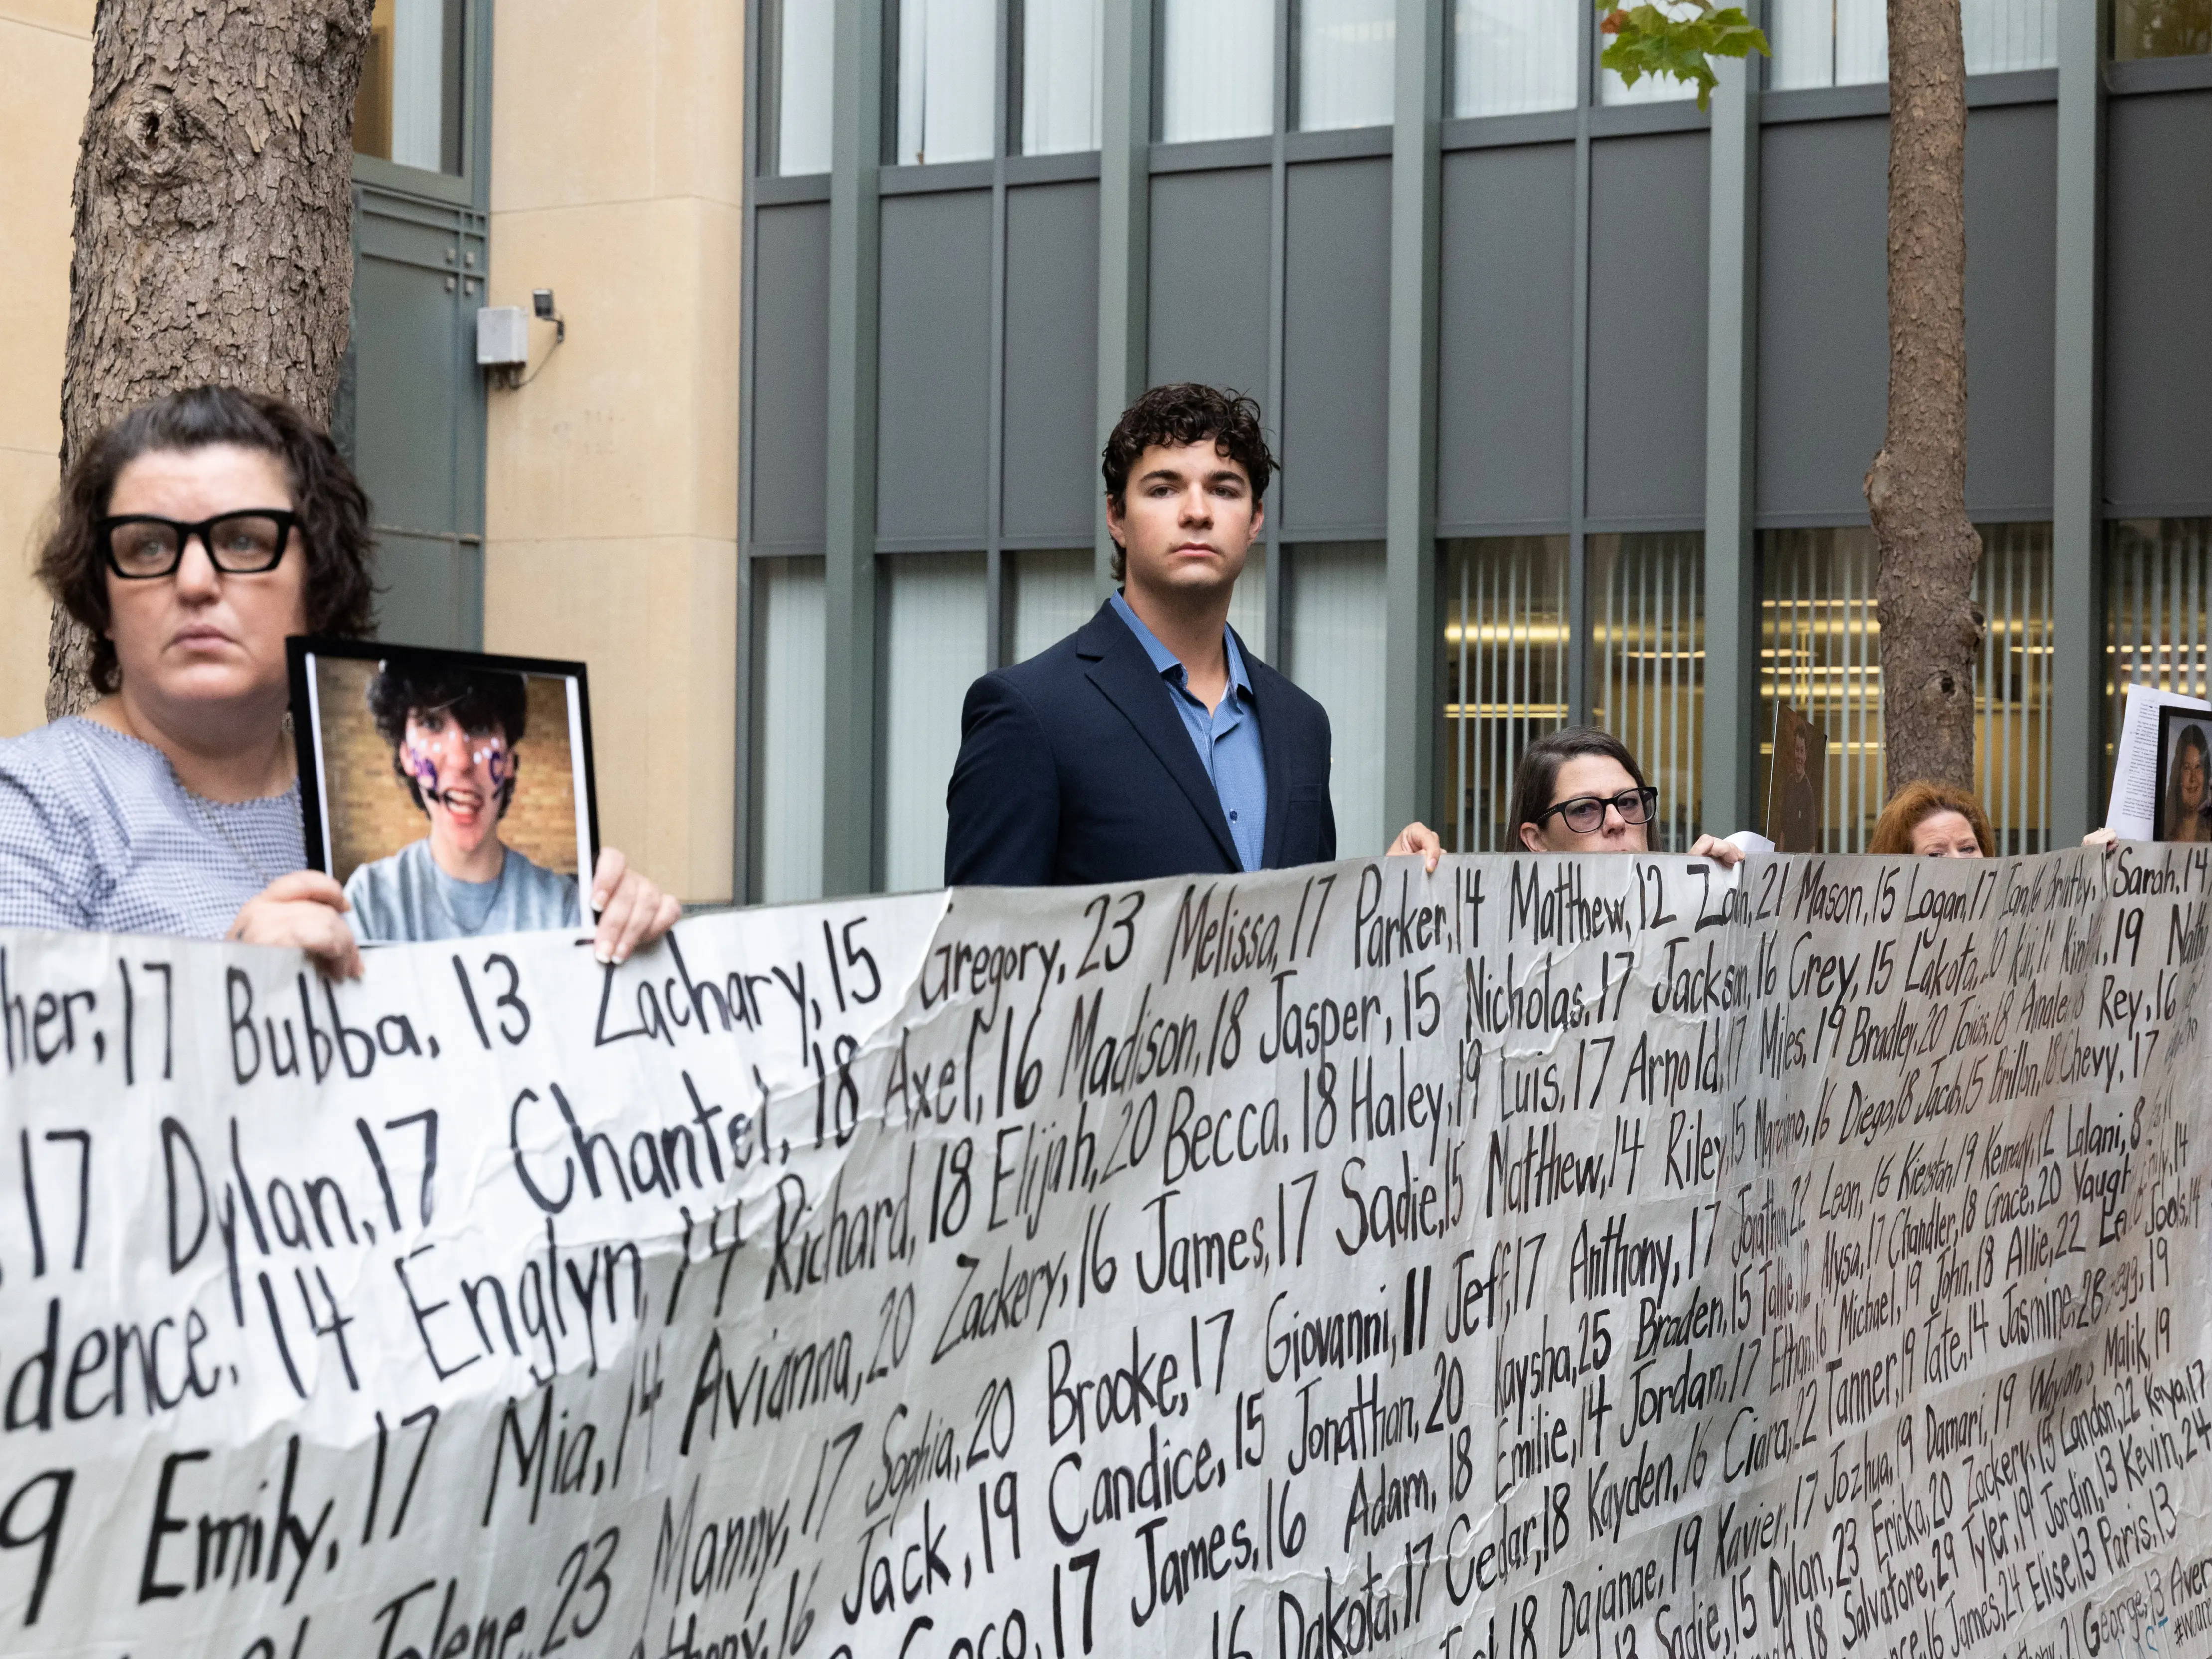 her, 17 Bubba, 13 Zachary, 15 Gregory, 23 Melissa, 17 Parker, 14 Matthew, 12 Zach, 21 Mason, 15 Logan, 17 Sarah, 14
17 Dylan, 17 Chantel, 18 Axel, 16 Madison, 18 Jasper, 15 Nicholas, 17 Jackson, 16 Grey, 15 Lakota, 20 Kai, 19
dence, 14 Englyn, 14 Richard, 18 Elijah, 20 Becca, 18 Haley, 19 Luis, 17 Arnold, 17 Miles, 19 Bradley, 20 Rey, 16
9 Emily, 17 Mia, 14 Avianna, 20 Zackery, 16 James, 17 Sadie, 15 Matthew, 14 Riley, 15 16 Diego, 18 Jacob, 15 18 Chevy, 17
Jolene, 23 Manny, 17 Sophia, 20 Brooke, 17 Giovanni, 11 Jeff, 17 Anthony, 17 Jonathan, 22 Leon, 16 19 Kennedy, 12 Lalani, 8
16 Jack, 19 Candice, 15 Jonathan, 20 Kaysha, 25 Braden, 15 Alysa, 17 Chandler, 18 Grace, 20
Coco, 17 James, 16 Adam, 18 Emilie, 14 Jordan, 17 Ethan, 16 Michael, 19 John, 18 Allie, 22
16 Dakota, 17 Cedar, 18 Kayden, 16 Ciara, 22 Tanner, 19 Tate, 14 Jasmine, 28 19
18 Dajanae, 19 Xavier, 17 Jozhua, 19 Damari, 19 Malik, 19
13 Sadie, 15 Dylan, 23 Ericka, 20 Zackery, 15 Landon, 22 Kaya, 17
18 Salvatore, 29 Tyler, 19 Jordin, 13 Kevin, 24
16 James, 24 Elise, 13 Paris, 13
21 George, 13